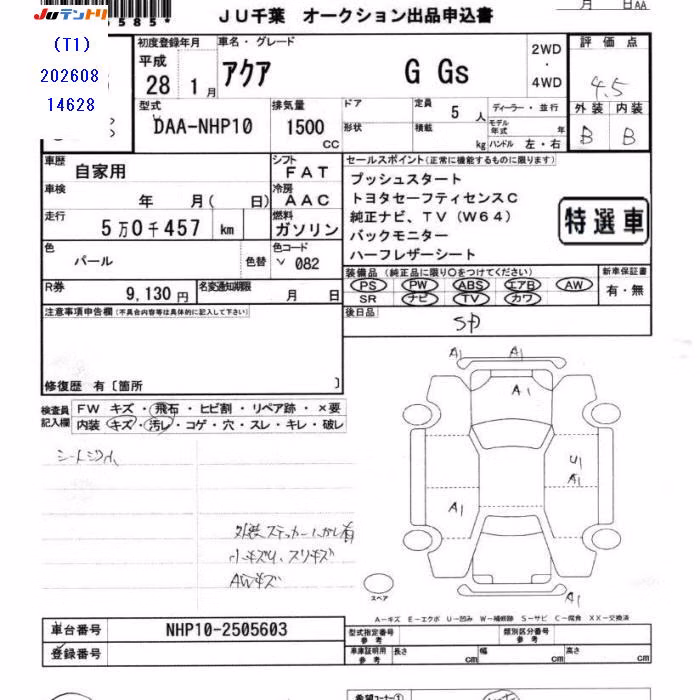 JUテントリ
585*
JU千葉 オークション出品申込書
月 日AA
(T1)
202608
14628
初度登録年月
平成
28 1月
車名・グレード
アクア G Gs
2WD
・
4WD
評価点
4.5
外装 内装
B B
型式
DAA-NHP10
排気量
1500
CC
ドア
形状
定員 5 人
積載 kg
ディーラー・並行
モデル年式 年
ハンドル 左・右
車歴
自家用
シフト
FAT
車検 年 月( 日)
冷房
AAC
走行 5万0千457 km
燃料
ガソリン
色
パール 色替
色コード
082
R券 9,130円
名変通知期限 月 日
セールスポイント(正常に機能するものに限ります)
プッシュスタート
トヨタセーフティセンスC
純正ナビ、TV(W64)
バックモニター
ハーフレザーシート
特選車
装備品(純正品に限り○をつけてください)
PS PW ABS エアB AW
SR ナビ TV カワ
新車保証書
有・無
注意事項申告欄(不具合内容等は具体的に記入して下さい)
後日品
SD
修復歴 有〔箇所 〕
検査員記入欄
FW キズ・飛石・ヒビ割・リペア跡・×要
内装 キズ・汚レ・コゲ・穴・スレ・キレ・破レ
外装ステッカーはがし有
小キズ、スリキズ
AWキズ
A1 A1
A1
U1
A1
A1
A1
スペア
A-キズ E-エクボ U-凹み W-補修跡 S-サビ C-腐食 XX-交換済
車台番号 NHP10-2505603
登録番号
型式指定番号参考
類別区分番号参考
車庫証明用参考 長さ cm 幅 cm 高さ cm
希望コーナー①